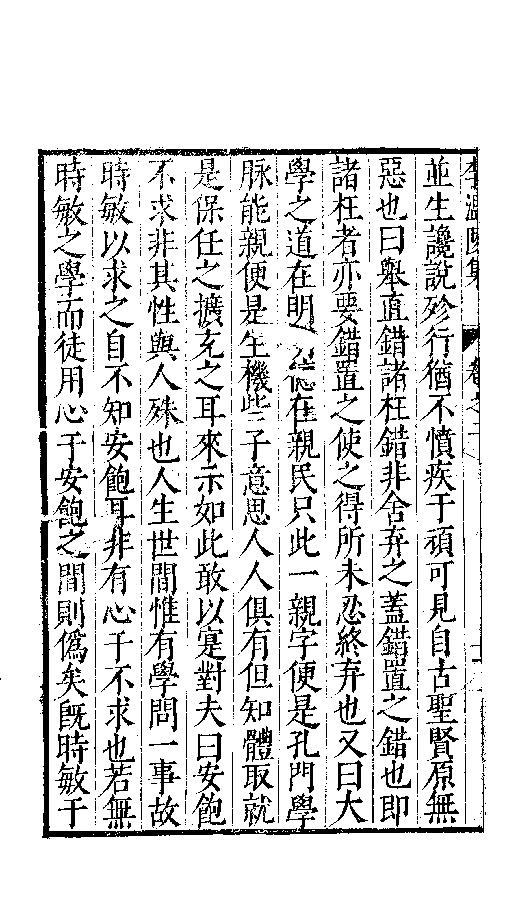 李溫陵集 卷之二
並生讒說殄行猶不憤疾于頑可見自古聖賢原無
惡也曰舉直錯諸枉錯非舍弃之蓋錯置之錯也即
諸枉者亦要錯置之使之得所未忍終弃也又曰大
學之道在明明德在親民只此一親字便是孔門學
脉能親便是生機些子意思人人俱有但知體取就
是保任之擴充之耳來示如此敢以寔對夫曰安飽
不求非其性與人殊也人生世間惟有學問一事故
時敏以求之自不知安飽耳非有心于不求也若無
時敏之學而徒用心于安飽之間則僞矣旣時敏于